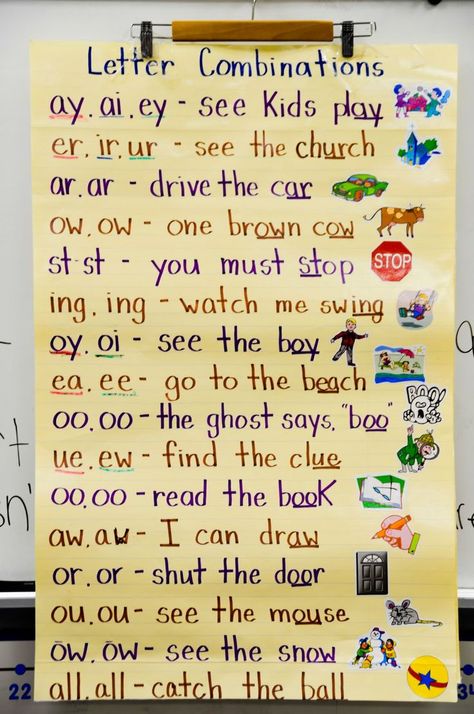 Letter Combinations
ay, ai, ey - see Kids play
er, ir, ur - see the church
ar, ar - drive the car
ow, ow - one brown cow
st-st - you must stop
STOP
ing, ing - watch me swing
oy, oi - see the boy
ea, ee - go to the beach
oo, oo - the ghost says, "boo"
BOO!
ue, ew - find the clue
oo, oo - read the booK
aw, aw - I can draw
or, or - shut the door
ou, ou - see the mouse
ōw, ōw - see the snow
all, all - catch the ball
22
34